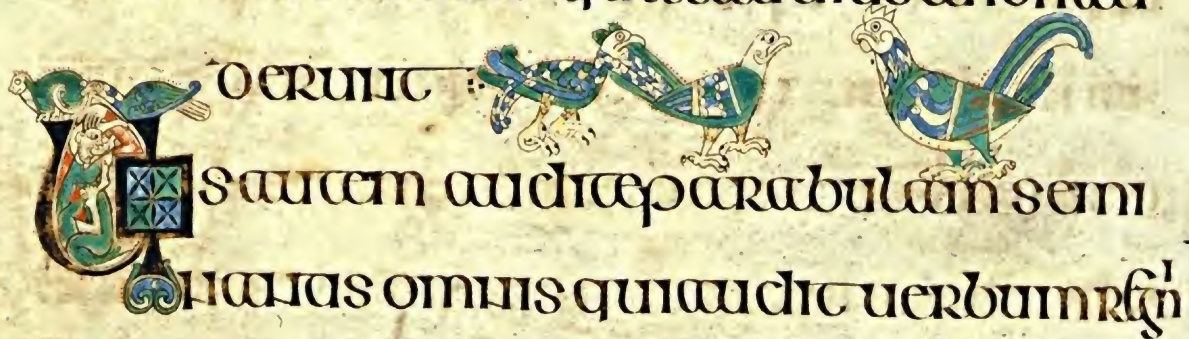 derunt
Uos autem audite parabulam semi
nantis omnis qui audit uerbum regni